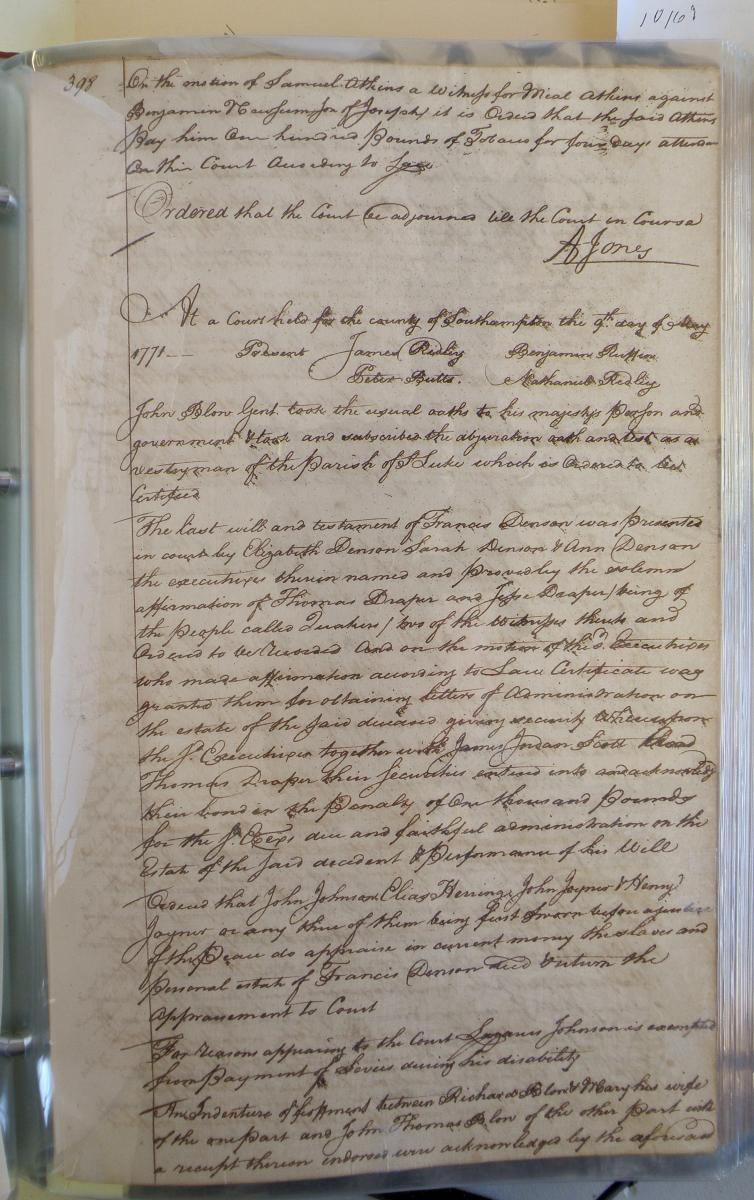 10/63
398
On the motion of Samuel Atkins a Witness for Mical Atkins against
Benjamin Newsum son of Joseph it is Ordered that the said Atkins
Pay him One hundred Pounds of Tobacco for four days attendan
on this Court According to Law
Ordered that the Court be adjourned till the Court in Course
A Jones
At a Court held for the county of Southampton the 9th day of May
1771 Present James Ridley Benjamin Ruffin
Peter Butts. Nathaniel Ridley
John Blow Gent. took the usual oaths to his majestys Person and
government & took and subscribed the abjuration oath and test as a
vestryman of the Parish of St Luke which is Ordered to be
Certified
The last will and testament of Francis Denson was Presented
in court by Elizabeth Denson Sarah Denson & Ann Denson
the executrixes therein named and Proved by the solemn
affirmation of Thomas Draper and Jesse Draper (being of
the People called Quakers) two of the Witnesses thereto and
Ordered to be recorded And on the motion of the sd. Executrixes
who made affirmation according to Law Certificate was
granted them for obtaining letters of Administration on
the estate of the said deceased giving security Whereupon
the sd. Executrixes together with James Jordan Scott
Thomas Draper their Securities entered into and acknowledg
their bond in the Penalty of One thousand Pounds
for the sd. Exexs due and faithful administration on the
Estate of the said decedent & Performance of his Will
Ordered that John Johnson Elias Herring John Joyner & Henry
Joyner or any three of them being first sworn before a justice
of the Peace do appraise in current money the slaves and
personal estate of Francis Denson decd & return the
appraisement to Court
For reasons appearing to the Court Johnson is exempted
from Payment of Levies during his disability
An Indenture of feofment between Richard Blow & Mary his wife
of the one Part and John Thomas Blow of the other Part with
a receipt thereon indorsed were acknowledged by the aforesaid